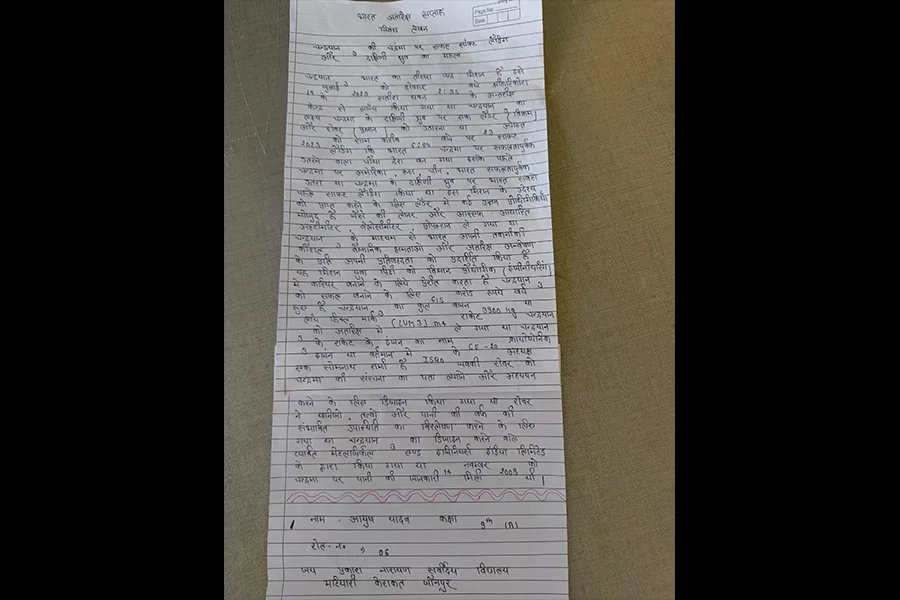 Page No.
Date
भारत अंतरिक्ष सप्ताह
निबंध लेखन
चन्द्रयान 3 की चंद्रमा पर सफल साफ्ट लैंडिंग
और दक्षिणी ध्रुव का महत्व
चन्द्रयान 3 भारत का तीसरा चन्द्र मिशन है इसे
14 जुलाई 2023 को दोपहर 2:35 बजे श्रीहरिकोटा
के सतीश धवन के अन्तरीक्ष
केन्द्र से लान्च किया गया था चन्द्रयान का
लक्ष्य चन्द्रमा के दक्षिणी ध्रुव पर एक लैंडर (विक्रम)
और रोवर (प्रज्ञान) को उतारना था 23 अगस्त
2023 को शाम करीब 6:04 बजे पर साफ्ट
लैंडिंग कि भारत चन्द्रमा पर सफलतापूर्वक
उतरने वाला चौथा देश बन गया इसके पहले
चन्द्रमा पर अमेरिका, रूस, चीन, भारत सफलतापूर्वक
उतरा था चन्द्रमा के दक्षिणी ध्रुव पर भारत सबसे
पहले साफ्ट लैंडिंग किया था इस मिशन के उद्देश्य
को प्राप्त करने के लिए लैंडर में कई उन्नत प्रौद्योगिकियाँ
मौजूद है जैसे की लेजर और आरएफ आधारित
अल्टीमीटर वेलोसीमीटर प्रोपल्शन ले गया था
चन्द्रयान 3 के माध्यम से भारत अपनी तकनीकी
कौशल वैज्ञानिक क्षमताओ और अंतरिक्ष अन्वेषण
के प्रति अपनी प्रतिबद्धता को प्रदर्शित किया है
यह मिशन युवा पिढी को विज्ञान प्रौद्योगीक (इंजीनीयरिंग)
में करियर बनाने के लिये प्रेरीत करता है चन्द्रयान 3
को सफल बनाने के लिए 615 करोड रुपये खर्च
हुए है चन्द्रयान 3 का कुल वजन 3900 kg था
लॉंच व्हिकल मार्क (LVM3) m4 राकेट चन्द्रयान
3 को अंतरिक्ष में ले गया था चन्द्रयान
3 के राकेट के इंजन का नाम CE-20 क्रायोजेनिक
इंजन था वर्तमान में ISRO के अध्यक्ष
एस सोमनाथ शर्मा है जबकी रोवर को
चन्द्रमा की संरचना का पता लगाने और अध्ययन
करने के लिए डिजाइन किया गया था रोवर
ने खनिजो, तत्वो और पानी की बर्फ की
संभावित उपस्थिती का विश्लेषण करने के लिए
गया था चन्द्रयान 3 का डिजाइन करने वाले
एण्ड इंजिनियर्स इंडिया लिमिटेड
के द्वारा किया गया था 14 नवम्बर 2009 को
चन्द्रमा पर पानी की जानकारी मिली थी।
नाम - आयुष यादव कक्षा 9th (A)
रोल-न० → 06
जय प्रकाश नारायण सर्वोदय विद्यालय
मटियारी केराकत जौनपुर